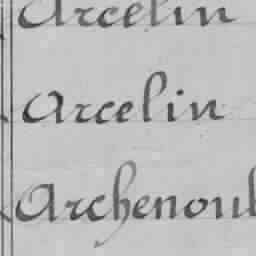 Arcelin
Arcelin
Archenoul